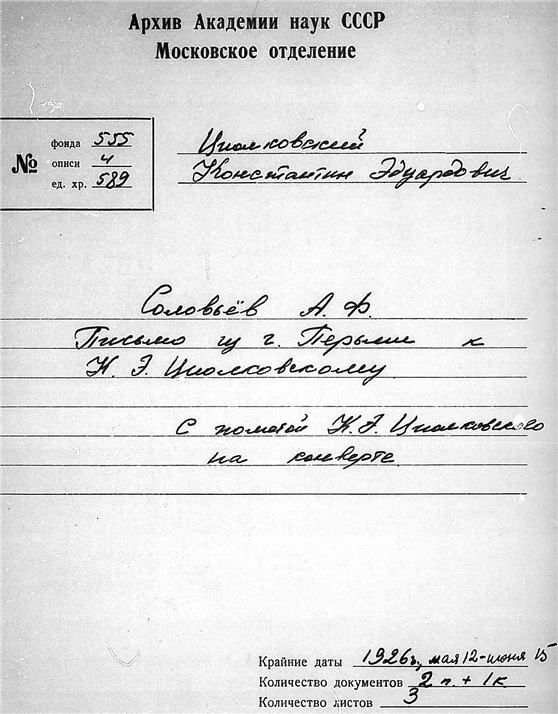 Архив Академии наук СССР
Московское отделение
№
фонда 555
описи 4
ед. хр. 589
Циолковский
Константин Эдуардович
Соловьёв А. Ф.
Письмо из г. Перьми к
К. Э. Циолковскому
С пометой К. Э. Циолковского
на конверте
Крайние даты 1926 г., мая 12 - июня 15
Количество документов 2 п. + 1 к
Количество листов 3